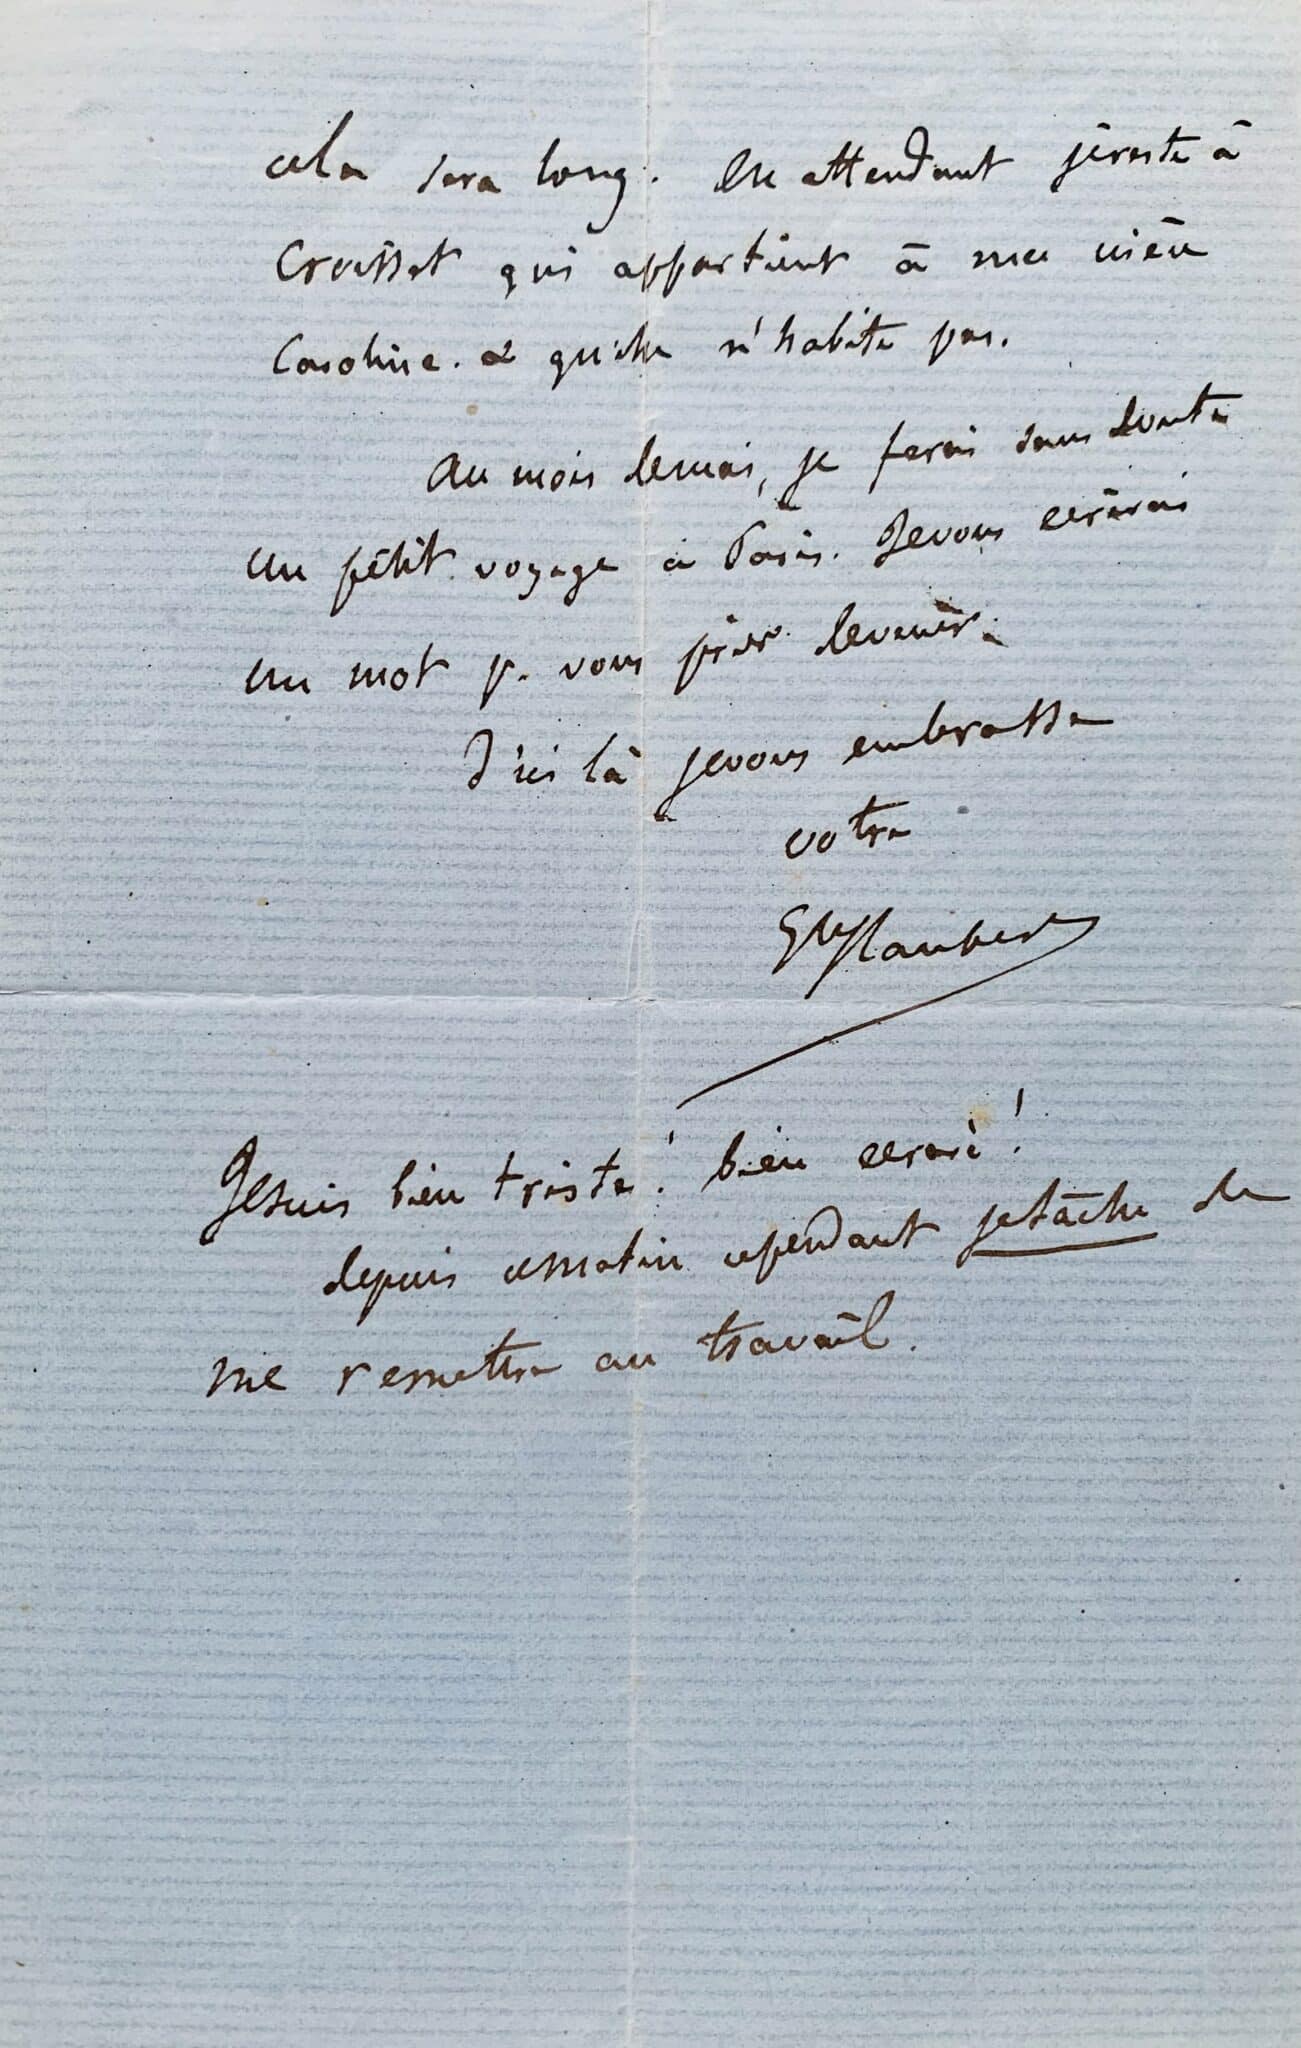 cela sera long. En attendant je reste à
Croisset qui appartient à ma nièce
Caroline. & qu'elle n'habite pas.
Au mois de mai, je ferai sans doute
un petit voyage à Paris. Je vous écrirai
un mot p. vous prier de venir.
D'ici là je vous embrasse
votre
Gve Flaubert
Je suis bien triste! bien écrasé!
depuis ce matin cependant je tâche de
me remettre au travail.